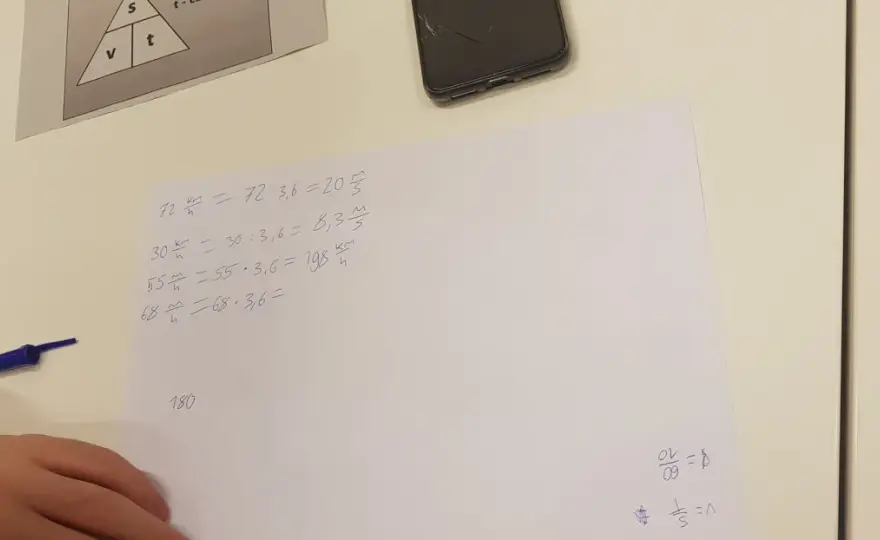 s
v t
72 km/h = 72 3,6 = 20 m/s
30 km/h = 30 : 3,6 = 8,3 m/s
55 m/h = 55 · 3,6 = 198 km/h
68 m/h = 68 · 3,6 =
180
v = s/t